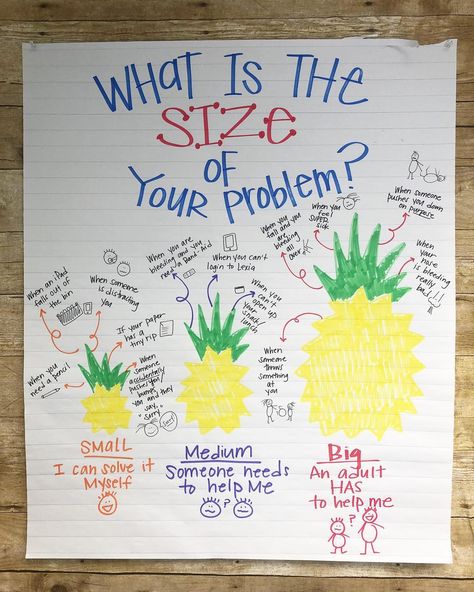 What Is The
SIZE
of
Your Problem?
When an iPad
falls out of
the bin
When someone
is distracting
you
When you
need a pencil
If your paper
has a
tiny rip
When
someone
accidentally
pushes you/
bumps
you and they
say,
"Sorry"
When you are
bleeding and you
need a Band Aid
When you can't
login to Lexia
When you
can't
open up
your
snack/
lunch
When you
fall and you
are
bleeding
all
over
When you
feel
SUPER
sick
When someone
pushes you down
on purpose
When
your
nose
is bleeding
really
bad!!!
When
someone
throws
something
at
you
Small
I can solve it
Myself
Medium
Someone needs
to help Me
?
Big
An adult
HAS
to help me
?